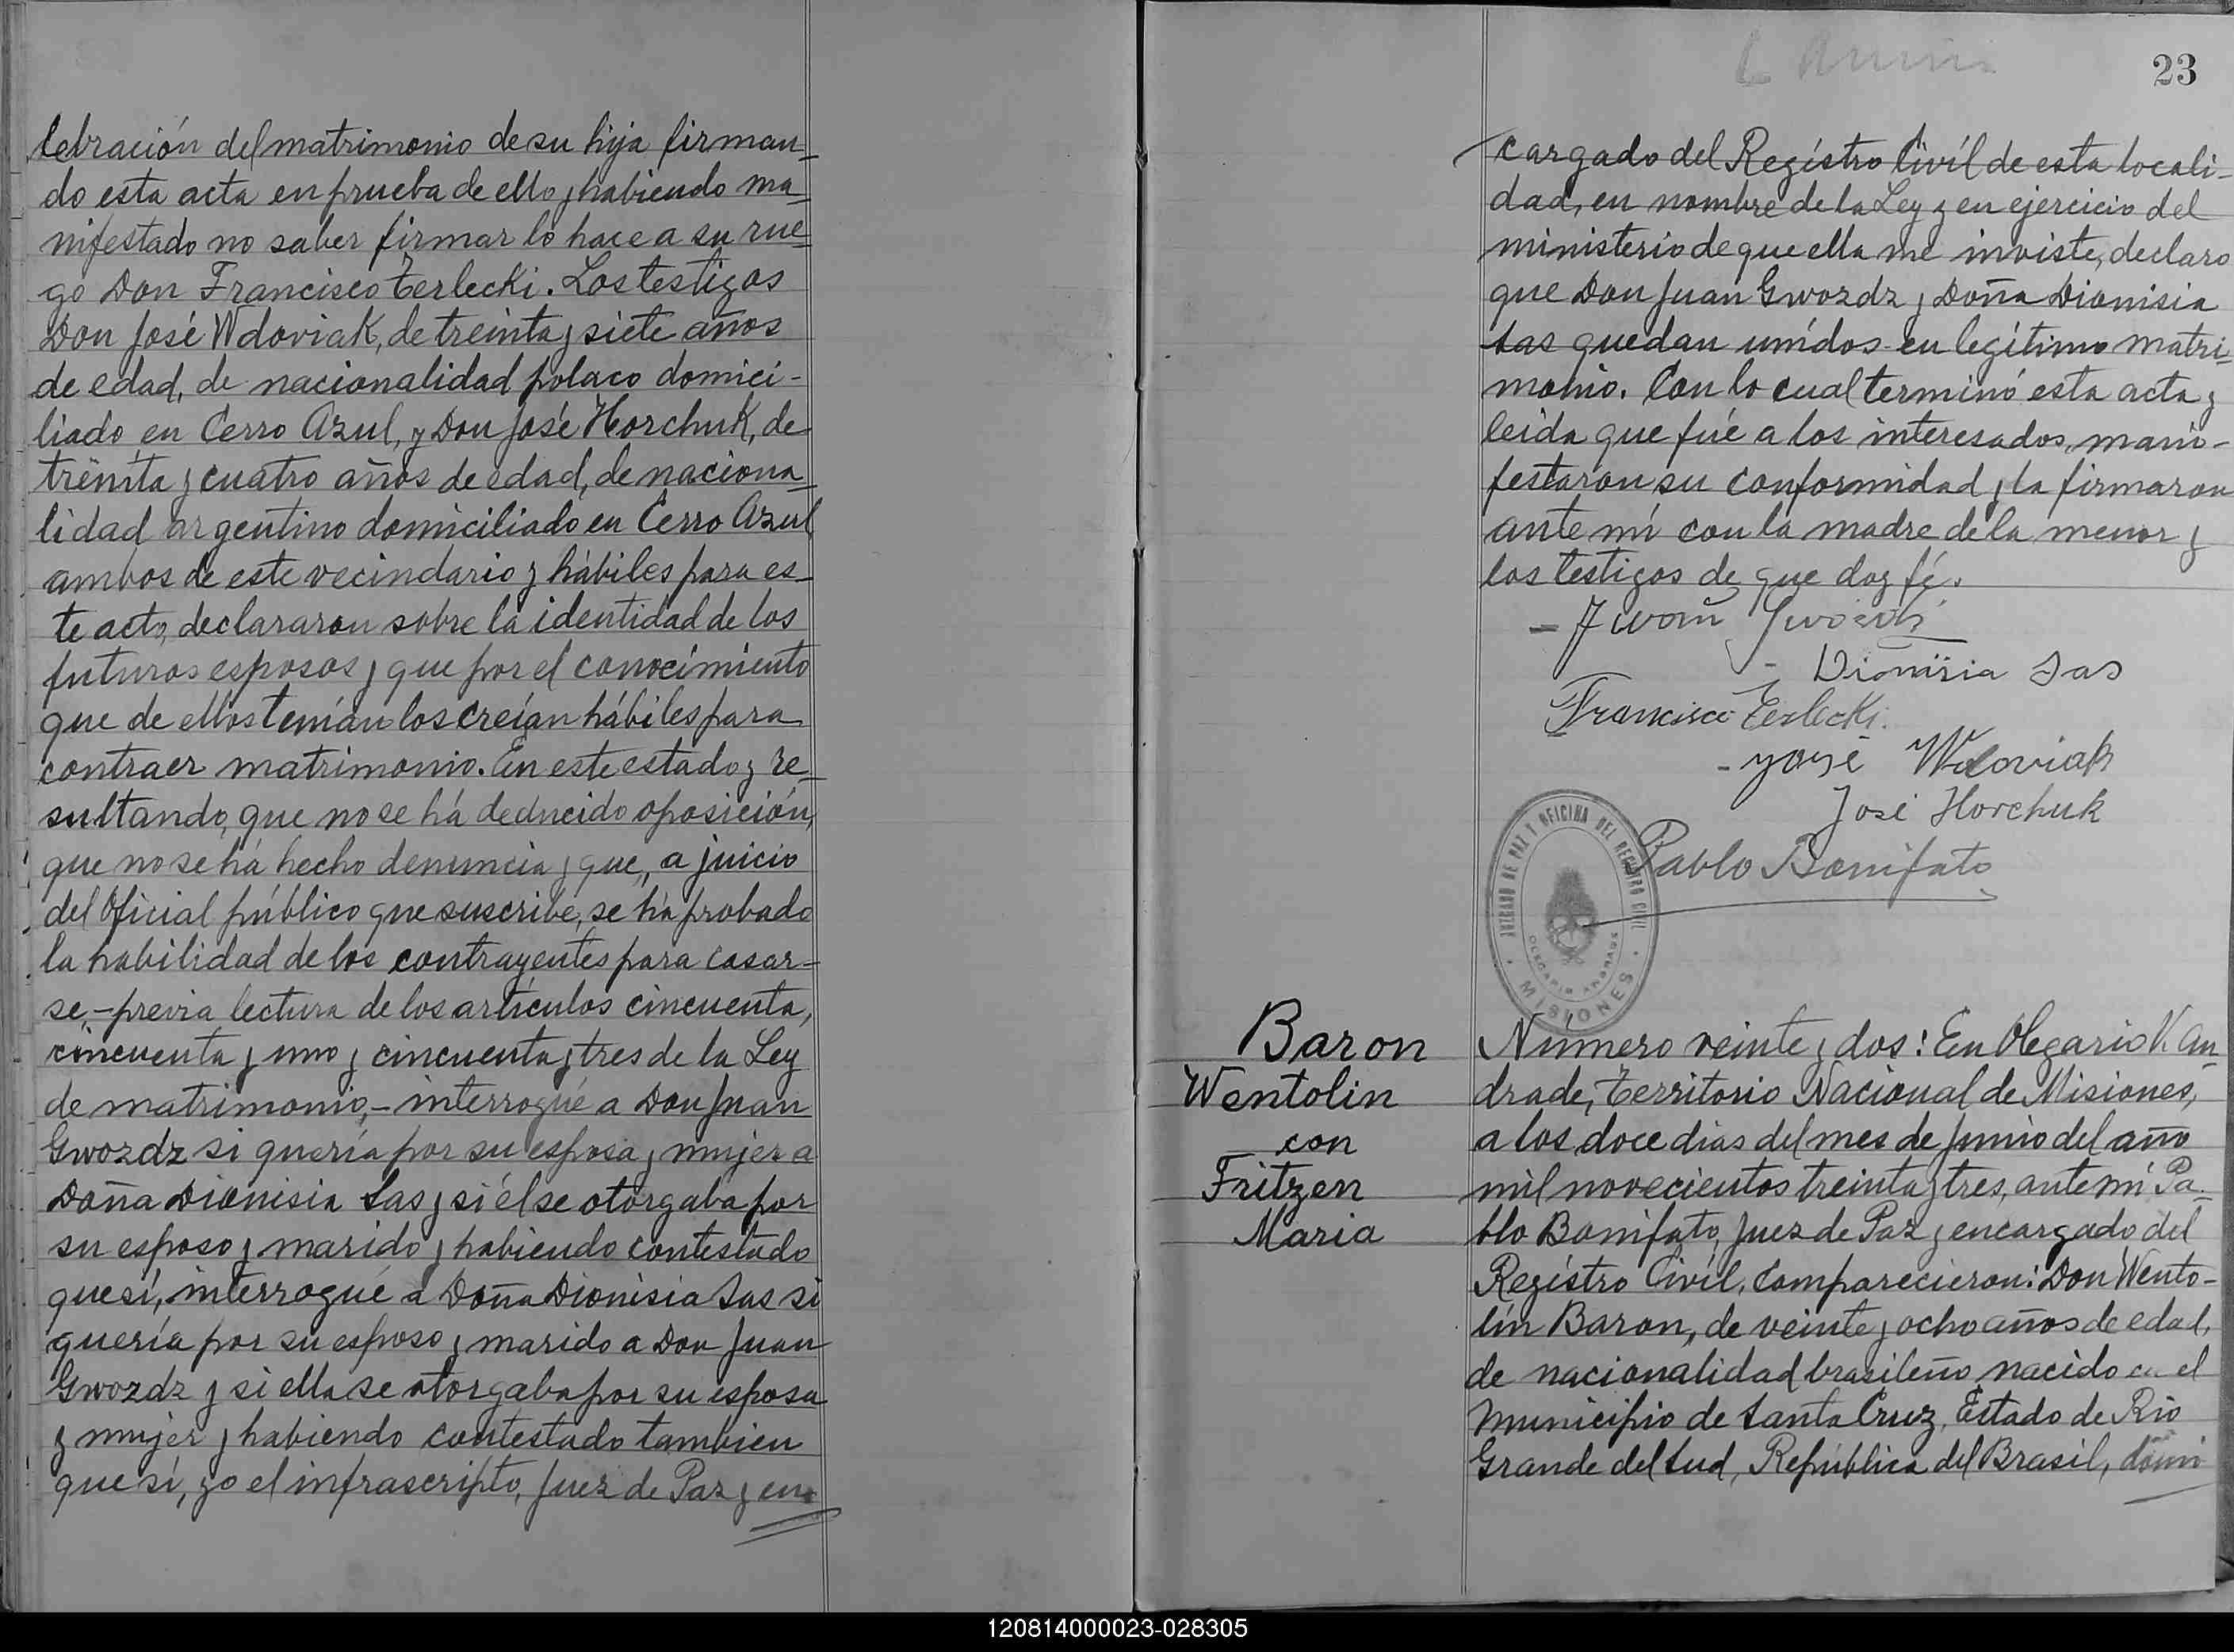 lebración del matrimonio de su hija firman-
do esta acta en prueba de ello y habiendo ma-
nifestado no saber firmar lo hace a su rue-
go Don Francisco Terlecki. Los testigos
Don José Wdoviak, de treinta y siete años
de edad, de nacionalidad polaco domici-
liado en Cerro Azul, y Don José Horchuk, de
treinta y cuatro años de edad, de naciona-
lidad argentino domiciliado en Cerro Azul
ambos de este vecindario y hábiles para es-
te acto, declararon sobre la identidad de los
futuros esposos y que por el conocimiento
que de ellos tenían los creían hábiles para
contraer matrimonio. En este estado y re-
sultando, que no se há deducido oposición,
que no se há hecho denuncia y que, a juicio
del Oficial público que suscribe, se há probado
la habilidad de los contrayentes para casar-
se, - previa lectura de los artículos cincuenta,
cincuenta y uno y cincuenta y tres de la Ley
de matrimonio, - interrogué a Don Juan
Gwozdz si quería por su esposa y mujer a
Doña Dionisia Sas y si él se otorgaba por
su esposo y marido y habiendo contestado
que sí, interrogué a Doña Dionisia Sas si
quería por su esposo y marido a Don Juan
Gwozdz y si ella se otorgaba por su esposa
y mujer y habiendo contestado tambien
que sí, yo el infrascripto, Juez de Paz y en-
23
cargado del Regístro Civíl de esta locali-
dad, en nombre de la Ley y en ejercicio del
ministerio de que ella me inviste, declaro
que Don Juan Gwozdz y Doña Dionisia
Sas quedan unídos en legítimo matri-
monio. Con lo cual terminó esta acta y
leida que fué a los interesados, mani-
festaron su conformidad y la firmaron
ante mí con la madre de la menor y
los testigos de que doy fé.
- Dionisia Sas
Francisco Terlecki.
- José Wdoviak
José Horchuk
Pablo Bonifato
JUZGADO DE PAZ Y OFICINA DEL REGISTRO CIVIL
OLEGARIO ANDRADE
· MISIONES ·
Baron
Wentolin
con
Fritzen
Maria
Número veinte y dos: En Olegario V. An-
drade, Territorio Nacional de Misiones,
a los doce dias del mes de Junio del año
mil novecientos treinta y tres, ante mí Pa-
blo Bonifato, Juez de Paz y encargado del
Regístro Civíl, Comparecieron: Don Wento-
lín Baron, de veinte y ocho años de edad,
de nacionalidad brasileño nacido en el
Municipio de Santa Cruz, Estado de Rio
Grande del Sud, República del Brasil, domi-
120814000023-028305